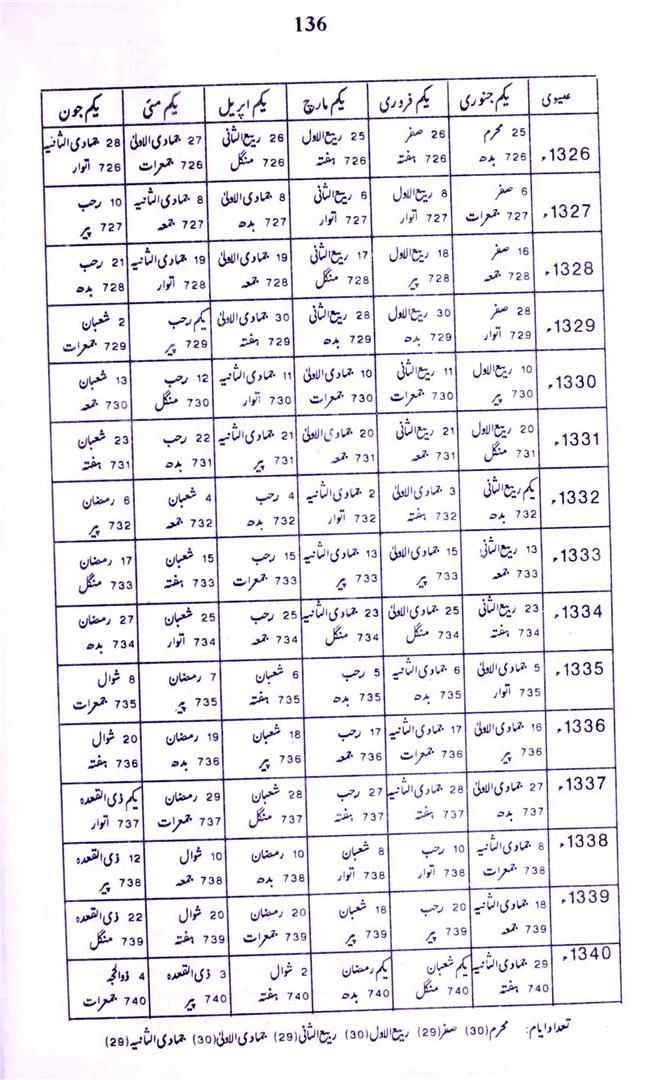 136
عیسوی یکم جنوری یکم فروری یکم مارچ یکم اپریل یکم مئی یکم جون
1326ء 25 محرم 26 صفر 25 ربیع الاول 26 ربیع الثانی 27 جمادی الاولیٰ 28 جمادی الثانیہ
726 بدھ 726 ہفتہ 726 ہفتہ 726 منگل 726 جمعرات 726 اتوار
1327ء 6 صفر 8 ربیع الاول 6 ربیع الثانی 8 جمادی الاولیٰ 8 جمادی الثانیہ 10 رجب
727 جمعرات 727 اتوار 727 اتوار 727 بدھ 727 جمعہ 727 پیر
1328ء 16 صفر 18 ربیع الاول 17 ربیع الثانی 19 جمادی الاولیٰ 19 جمادی الثانیہ 21 رجب
728 جمعہ 728 پیر 728 منگل 728 جمعہ 728 اتوار 728 بدھ
1329ء 28 صفر 30 ربیع الاول 28 ربیع الثانی 30 جمادی الاولیٰ یکم رجب 2 شعبان
729 اتوار 729 بدھ 729 بدھ 729 ہفتہ 729 پیر 729 جمعرات
1330ء 10 ربیع الاول 11 ربیع الثانی 10 جمادی الاولیٰ 11 جمادی الثانیہ 12 رجب 13 شعبان
730 پیر 730 جمعرات 730 جمعرات 730 اتوار 730 منگل 730 جمعہ
1331ء 20 ربیع الاول 21 ربیع الثانی 20 جمادی الاولیٰ 21 جمادی الثانیہ 22 رجب 23 شعبان
731 منگل 731 جمعہ 731 جمعہ 731 پیر 731 بدھ 731 ہفتہ
1332ء یکم ربیع الثانی 3 جمادی الاولیٰ 2 جمادی الثانیہ 4 رجب 4 شعبان 6 رمضان
732 بدھ 732 ہفتہ 732 اتوار 732 بدھ 732 جمعہ 732 پیر
1333ء 13 ربیع الثانی 15 جمادی الاولیٰ 13 جمادی الثانیہ 15 رجب 15 شعبان 17 رمضان
733 جمعہ 733 پیر 733 پیر 733 جمعرات 733 ہفتہ 733 منگل
1334ء 23 ربیع الثانی 25 جمادی الاولیٰ 23 جمادی الثانیہ 25 رجب 25 شعبان 27 رمضان
734 ہفتہ 734 منگل 734 منگل 734 جمعہ 734 اتوار 734 بدھ
1335ء 5 جمادی الاولیٰ 6 جمادی الثانیہ 5 رجب 6 شعبان 7 رمضان 8 شوال
735 اتوار 735 بدھ 735 بدھ 735 ہفتہ 735 پیر 735 جمعرات
1336ء 16 جمادی الاولیٰ 17 جمادی الثانیہ 17 رجب 18 شعبان 19 رمضان 20 شوال
736 پیر 736 جمعرات 736 جمعہ 736 پیر 736 بدھ 736 ہفتہ
1337ء 27 جمادی الاولیٰ 28 جمادی الثانیہ 27 رجب 28 شعبان 29 رمضان یکم ذی القعدہ
737 بدھ 737 ہفتہ 737 ہفتہ 737 منگل 737 جمعرات 737 اتوار
1338ء 8 جمادی الثانیہ 10 رجب 8 شعبان 10 رمضان 10 شوال 12 ذی القعدہ
738 جمعرات 738 اتوار 738 اتوار 738 بدھ 738 جمعہ 738 پیر
1339ء 18 جمادی الثانیہ 20 رجب 18 شعبان 20 رمضان 20 شوال 22 ذی القعدہ
739 جمعہ 739 پیر 739 پیر 739 جمعرات 739 ہفتہ 739 منگل
1340ء 29 جمادی الثانیہ یکم شعبان یکم رمضان 2 شوال 3 ذی القعدہ 4 ذوالحجہ
740 ہفتہ 740 منگل 740 بدھ 740 ہفتہ 740 پیر 740 جمعرات
تعداد ایام: محرم (30) صفر (29) ربیع الاول (30) ربیع الثانی (29) جمادی الاولیٰ (30) جمادی الثانیہ (29)